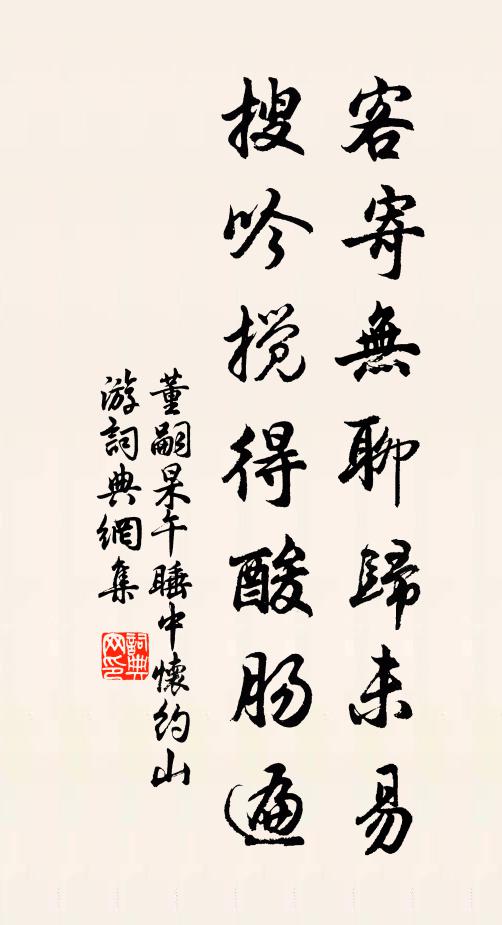 客寄無聊歸未易
搜吟攪得酸肠遍
董嗣杲午睡中懷約山
游詞典網集
詞典网印